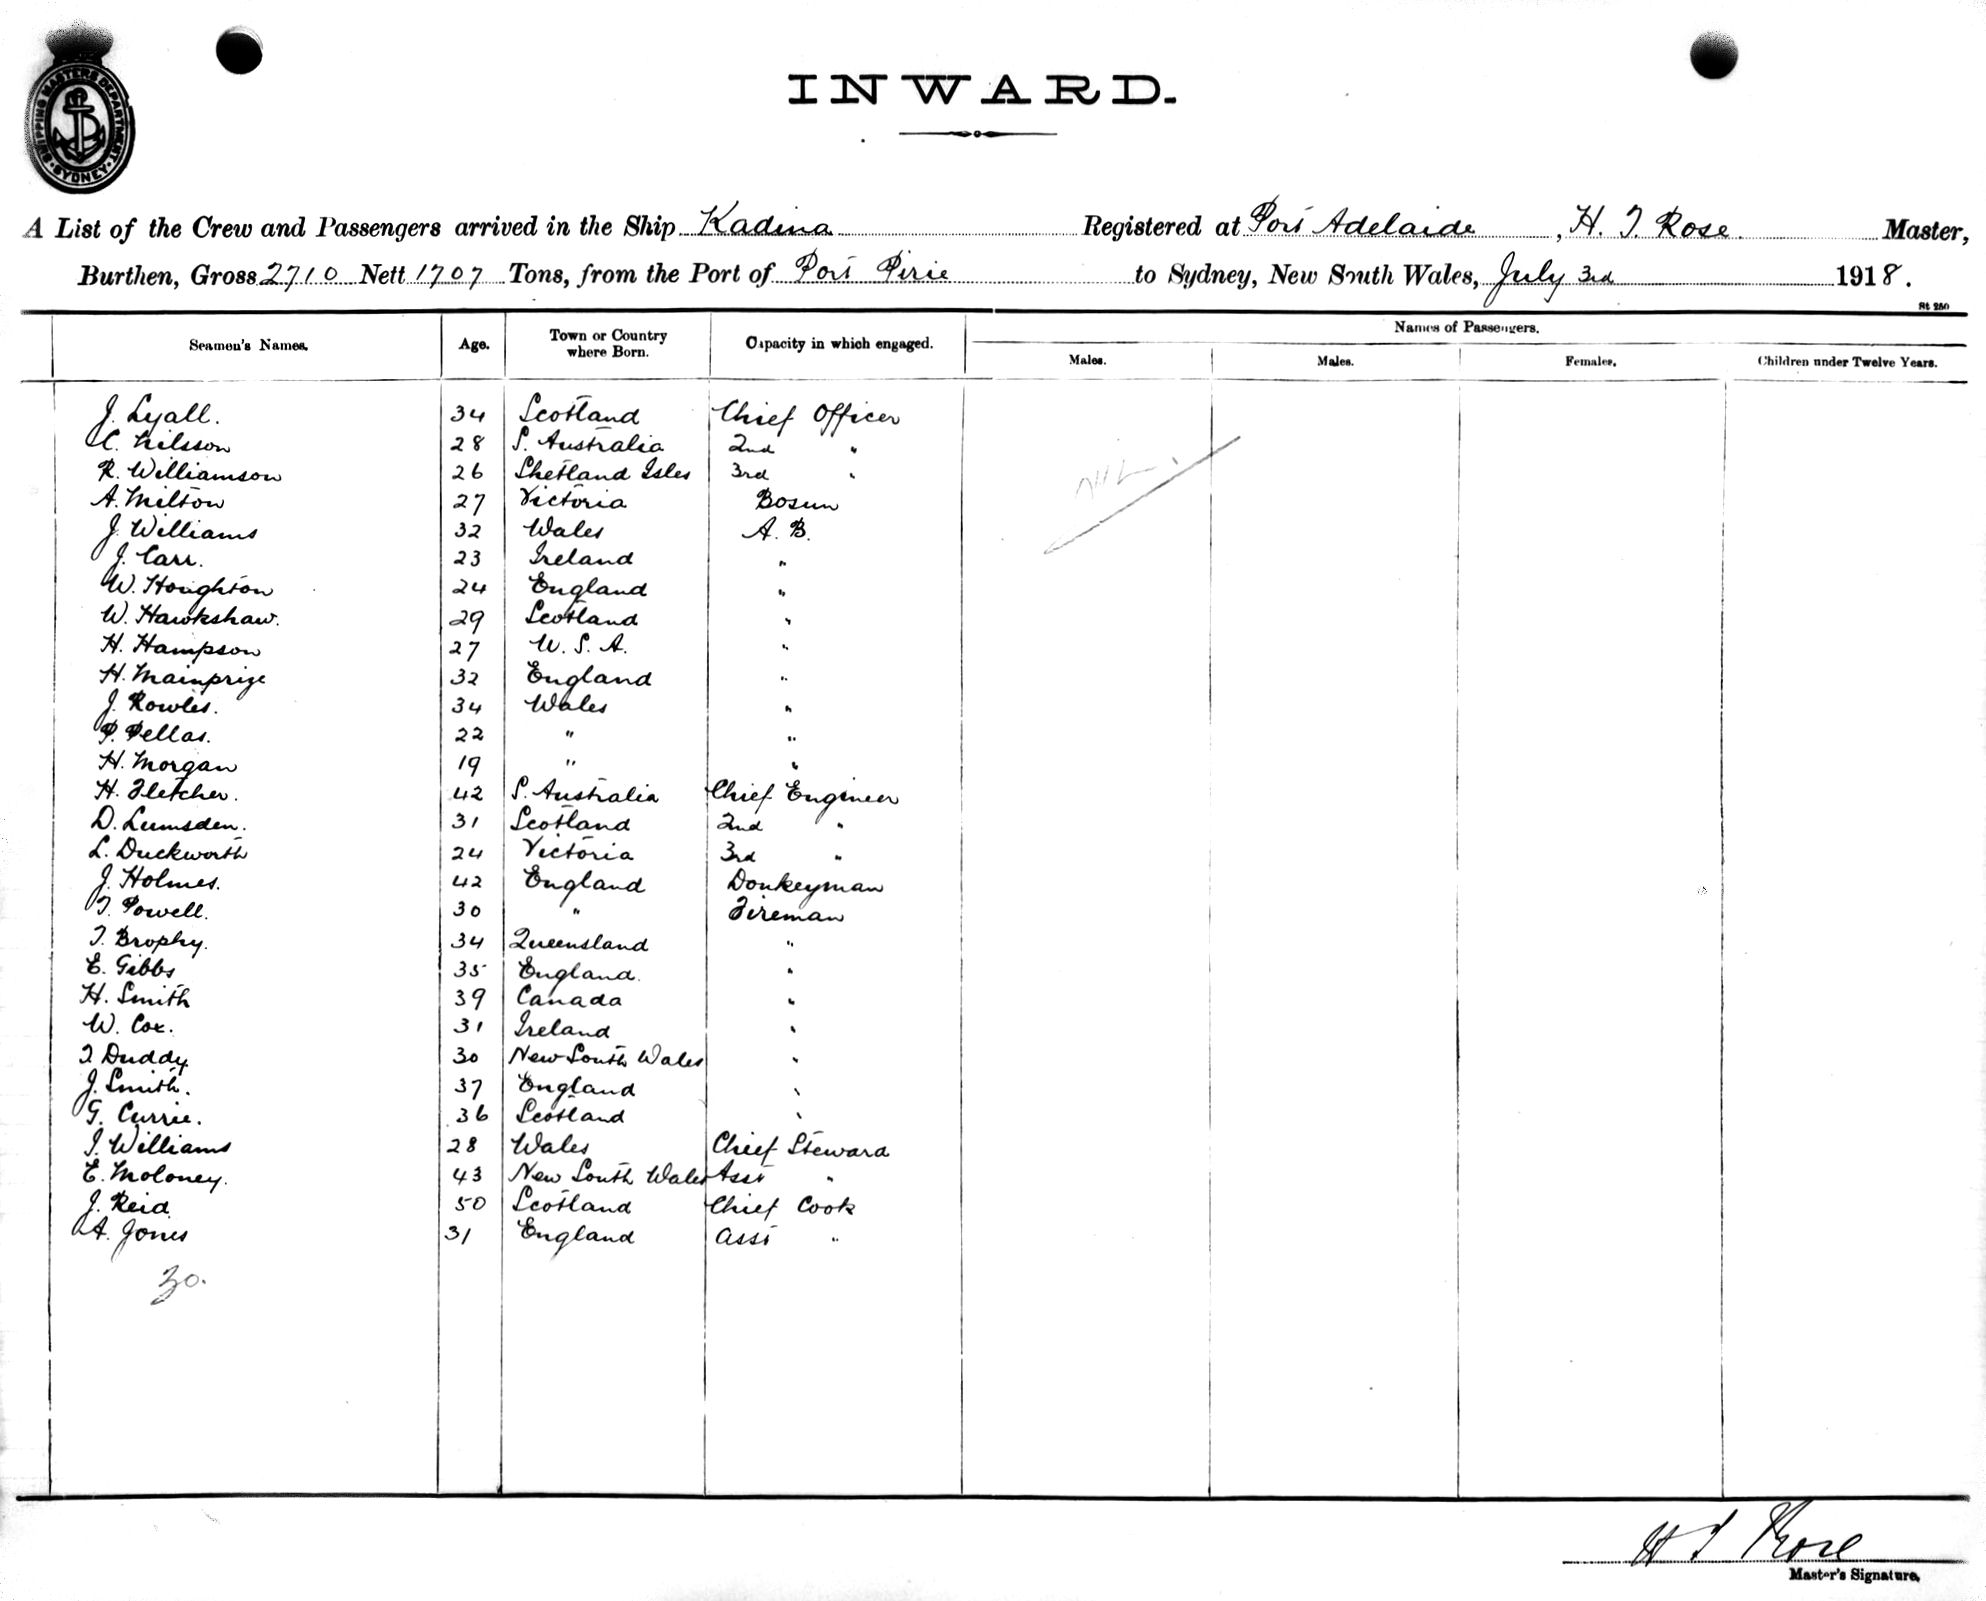 SHIPPING MASTERS DEPARTMENT
SYDNEY
INWARD.
A List of the Crew and Passengers arrived in the Ship Kadina Registered at Port Adelaide, H. T. Rose Master,
Burthen, Gross 2710 Nett 1707 Tons, from the Port of Port Pirie to Sydney, New South Wales, July 3rd 1918.
St 250
Seamen's Names. Age. Town or Country where Born. Capacity in which engaged. Names of Passengers.
Males. Males. Females. Children under Twelve Years.
J. Lyall. 34 Scotland Chief Officer
C. Nilsson 28 S. Australia 2nd "
R. Williamson 26 Shetland Isles 3rd "
A. Milton 27 Victoria Bosun
J. Williams 32 Wales A. B.
J. Carr. 23 Ireland "
W. Houghton 24 England "
W. Hawkshaw. 29 Scotland "
H. Hampson 27 U. S. A. "
H. Mainprize 32 England "
J. Rowles. 34 Wales "
P. Pellas. 22 " "
H. Morgan 19 " "
H. Fletcher. 42 S. Australia Chief Engineer
D. Lumsden. 31 Scotland 2nd "
L. Duckworth 24 Victoria 3rd "
J. Holmes. 42 England Donkeyman
T. Powell. 30 " Fireman
T. Brophy. 34 Queensland "
E. Gibbs 35 England. "
H. Smith 39 Canada "
W. Cox. 31 Ireland "
T Duddy 30 New South Wales "
J. Smith. 37 England "
G. Currie. 36 Scotland "
I. Williams 28 Wales Chief Steward
E. Moloney. 43 New South Wales Asst "
J. Reid 50 Scotland Chief Cook
A. Jones 31 England Asst "
30.
H T Rose
Master's Signature.